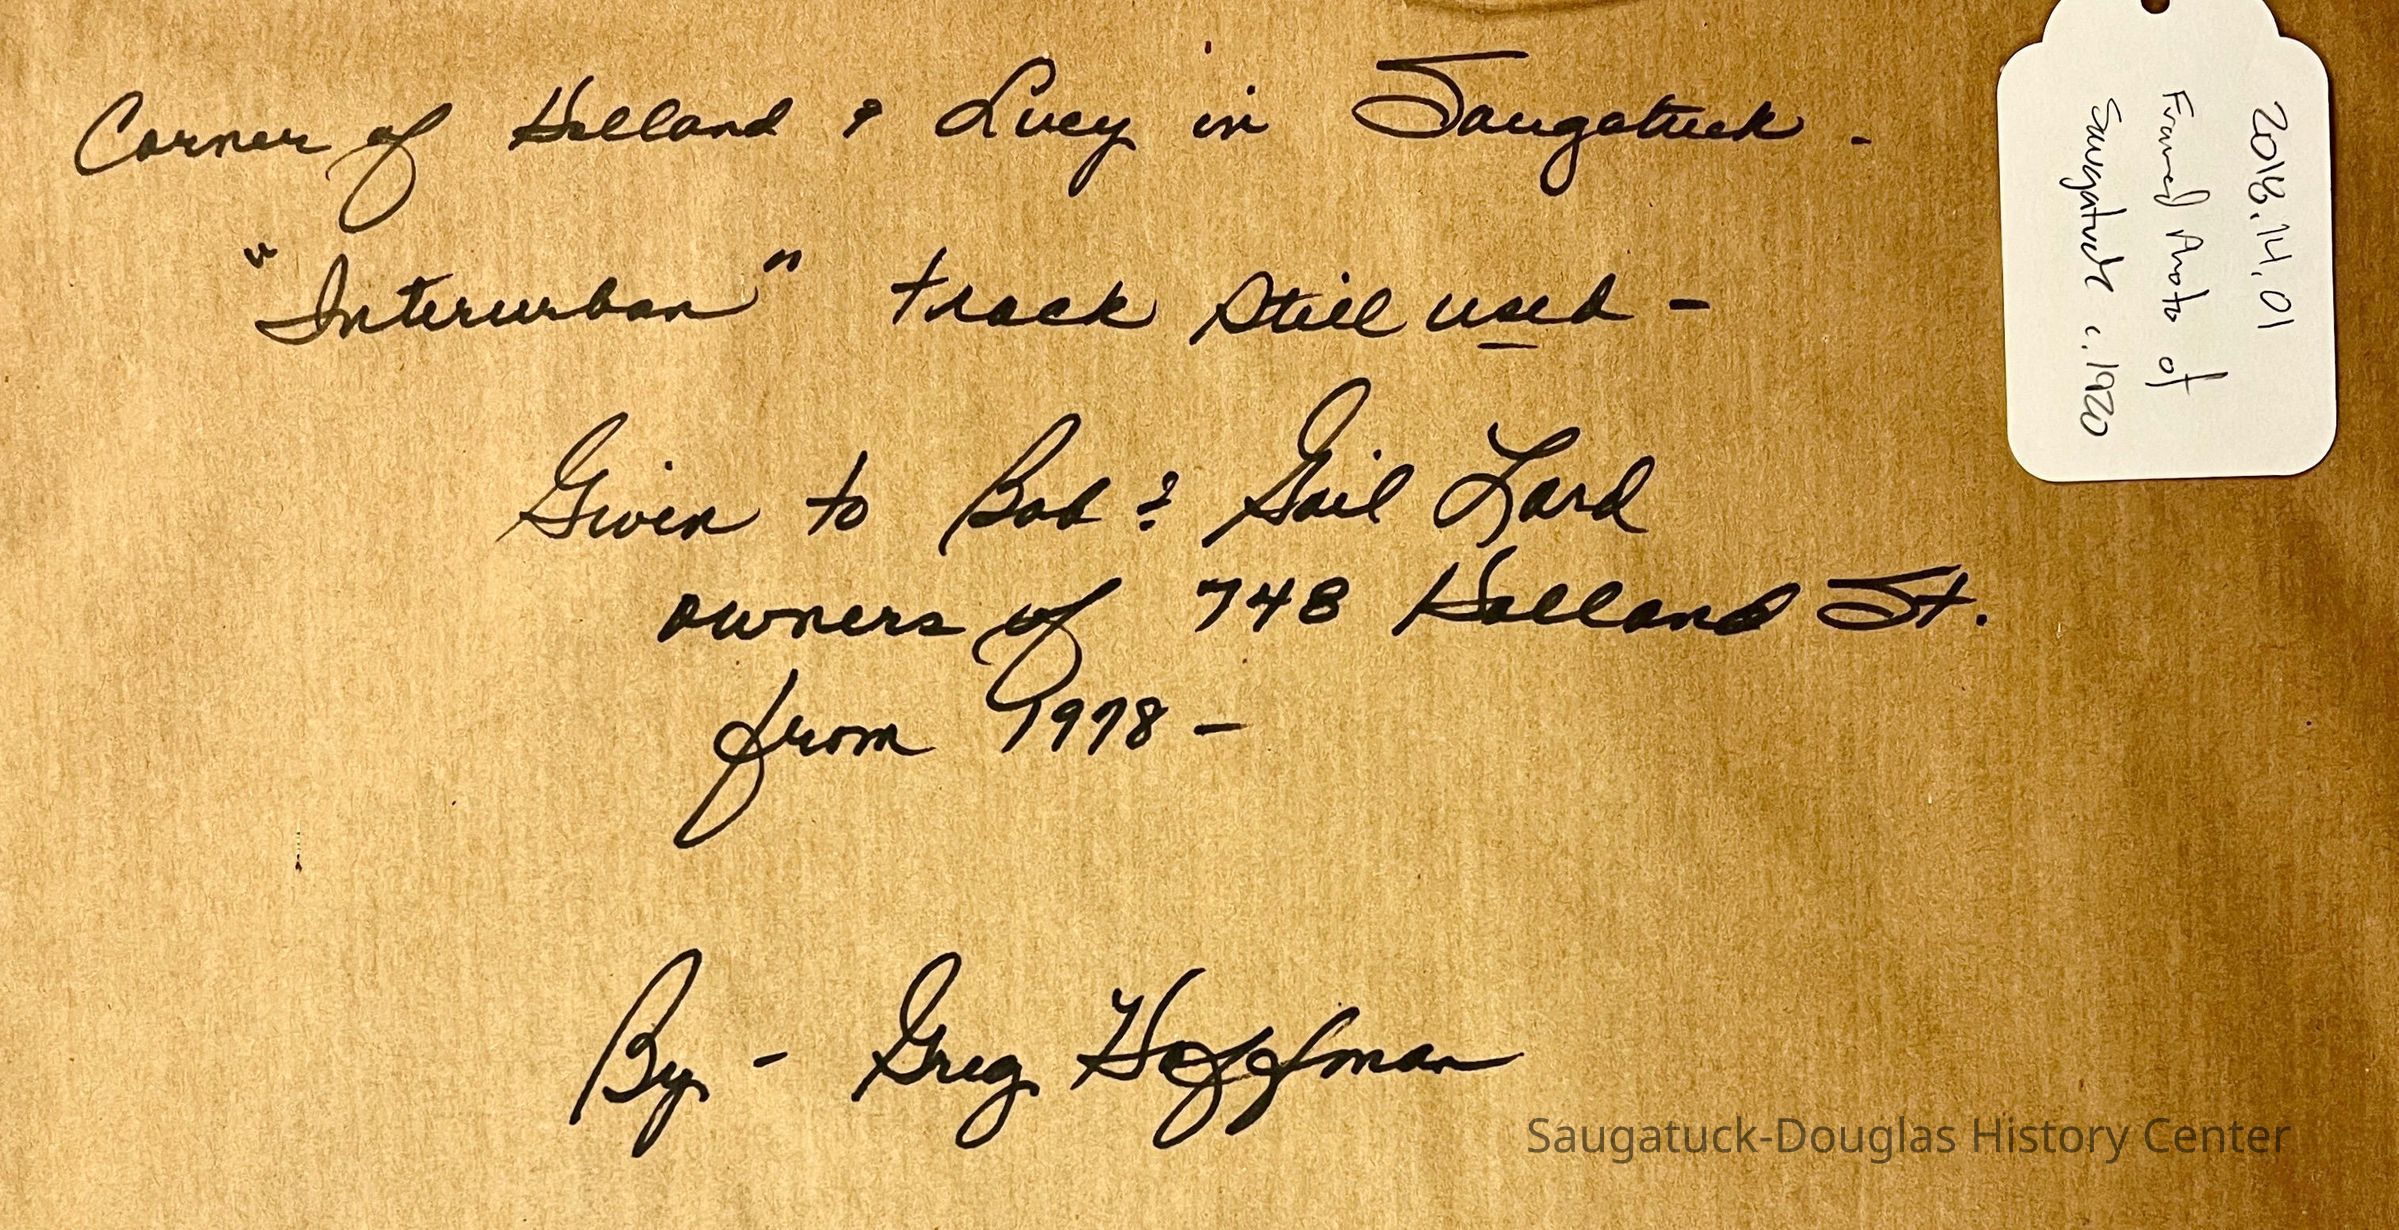 Corner of Holland & Lucy in Saugatuck.
"Interurban" track still used -
Given to Bob & Gail Lard
owners of 748 Holland St.
from 1978 -
By - Greg Hoffman
2018.14.01
Framed Photo of
Saugatuck c. 1920
Saugatuck-Douglas History Center